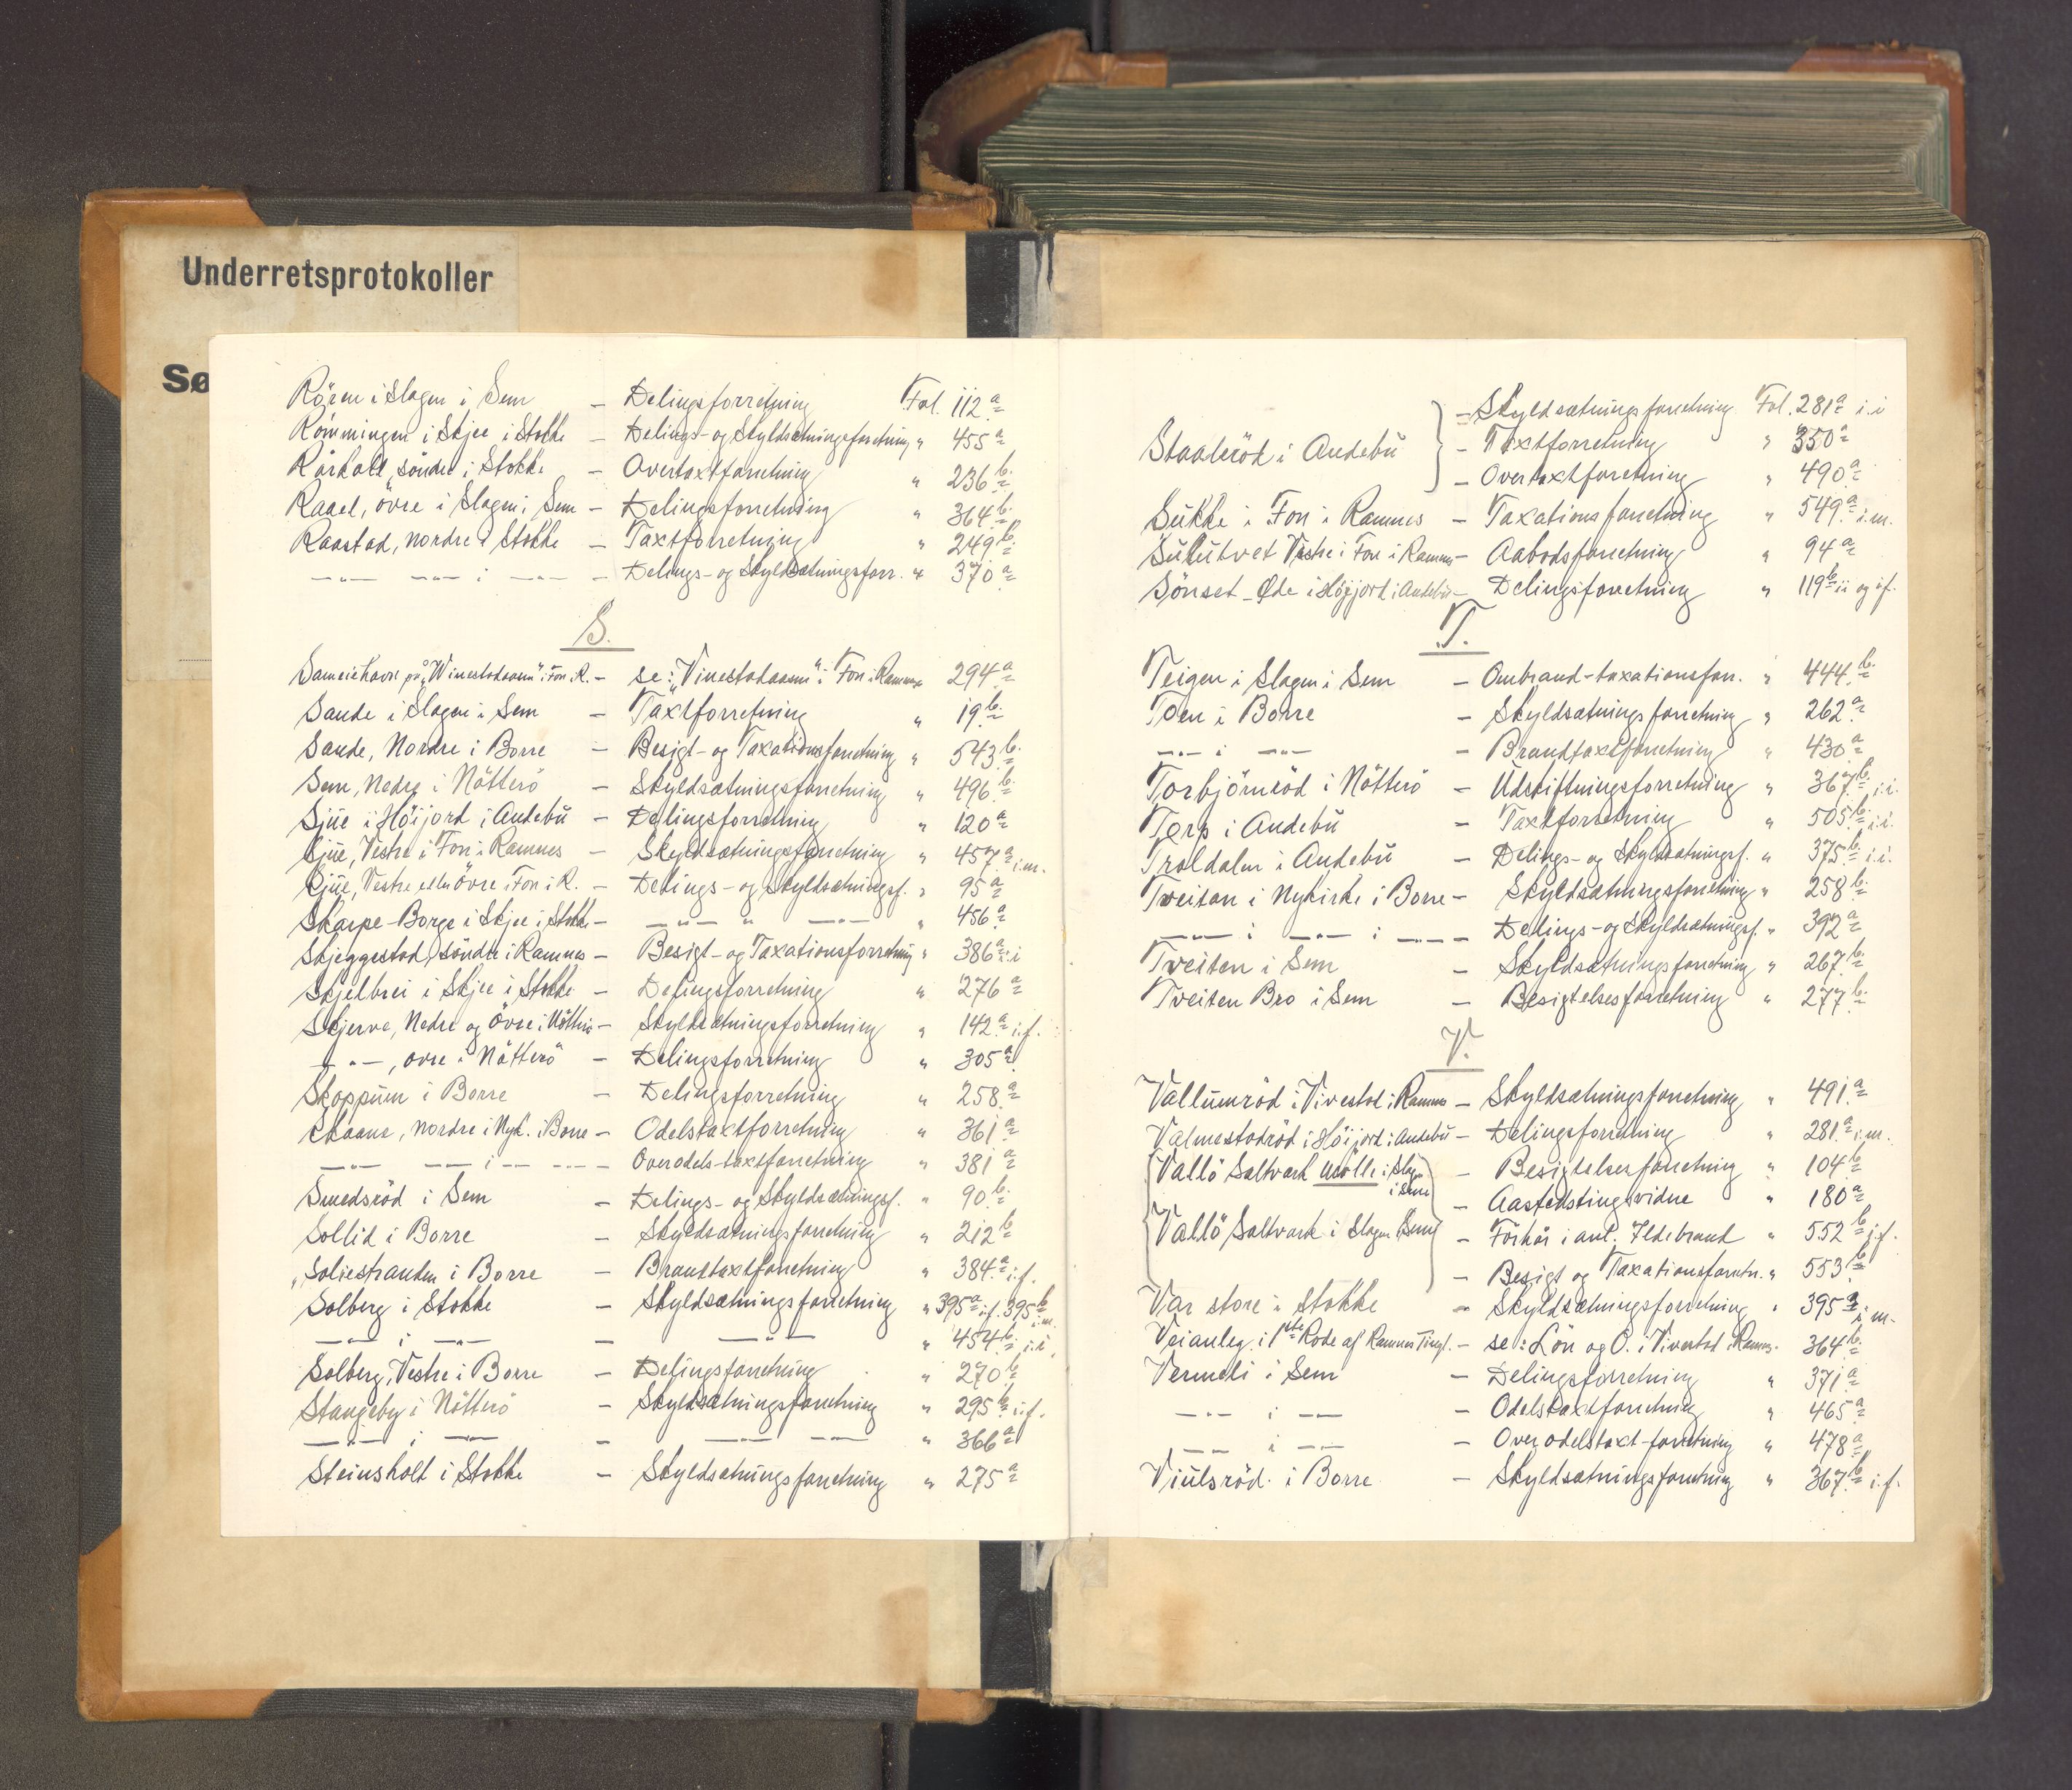 Underretsprotokoller
Sø
Rören i Slagen i Sem – Delingsforretning Fol. 112 a
Römmingen i Skjee i Stokke – Delings- og Skyldsætningsforretning " 455 a
Rörkoll, söndre i Stokke – Overtaxtforretning " 236 b.
Raael, övre i Slagen i Sem – Delingsforretning " 364 b.
Raastad, nordre i Stokke – Taxtforretning " 249 b.
—"— —"— i —"— – Delings- og Skyldsætningsforr. " 370 a
S.
Sameiehavn på „Winestadaasen" i Fon i R. – se: „Vinestadaasen" i Fon i Ramnes 294 a
Sande i Slagen i Sem – Taxtforretning " 19 b.
Sande, Nordre i Borre – Besigt- og Taxationsforretning " 543 b.
Sem, Nedre i Nötterö – Skyldsætningsforretning " 496 b.
Sjue i Höijord i Andebu – Delingsforretning " 120 a
Sjue, Vestre i Fon i Ramnes – Skyldsætningsforretning " 457 a i.m.
Sjue, Vestre eller övre i Fon i R. – Delings- og Skyldsætningsf. " 95 a
Skarpe-Borge i Skjee i Stokke – —"— " —"— " 456 a
Skjeggestad, söndre i Ramnes – Besigt- og Taxationsforretning " 386 a i.i
Skjelbrei i Skjee i Stokke – Delingsforretning " 276 a
Skjerve, Nedre og övre i Nötterö – Skyldsætningsforretning " 142 a i.f.
—"—, övre i Nötterö – Delingsforretning " 305 a
Skoppum i Borre – Delingsforretning " 258 a
Skaane, nordre i Nyk. i Borre – Odelstaxtforretning " 361 a
—"— —"— i —"— —"— – Overodels-taxtforretning " 381 a
Smedsröd i Sem – Delings- og Skyldsætningsf. " 90 b.
Sollid i Borre – Skyldsætningsforretning " 212 b
„Soliestranden i Borre – Brandtaxtforretning " 384 a i.f.
Solberg i Stokke – Skyldsætningsforretning " 395 a i.f. 395 b i.m.
—"— i —"— – —"— " 454 b. i.i.
Solberg, Vestre i Borre – Delingsforretning " 270 b.
Stangeby i Nötterö – Skyldsætningsforretning " 295 b i.f.
—"— i —"— – —"— —"— " 366 a
Steinsholt i Stokke – Skyldsætningsforretning " 275 a
– Skyldsætningsforretning Fol. 281 a i.i
Staaleröd i Andebu } – Taxtforretning " 350 a
– Overtaxtforretning " 490 a
Sukke i Fon i Ramnes – Taxationsforretning " 549 a i.m.
Sulutvet Vestre i Fon i Ramnes – Aabodsforretning " 94 a
Sönset-Øde i Höijord i Andebu – Delingsforretning " 119 b i.i og i.f.
T.
Teigen i Slagen i Sem – Ombrand-taxationsforr. " 444 b.
Toen i Borre – Skyldsætningsforretning " 262 a
—"— i —"— – Brandtaxtforretning " 430 a
Torbjörnröd i Nötterö – Udskiftningsforretning " 367 b. i.i.
Torp i Andebu – Taxtforretning " 505 b. i.i.
Troldalen i Andebu – Delings- og Skyldsætningsf. " 375 b. i.i.
Tveiten i Nykirke i Borre – Skyldsætningsforretning " 258 b.
—"— i —"— i —"— – Delings- og Skyldsætningsf. " 392 a
Tveiten i Sem – Skyldsætningsforretning " 267 b.
Tveiten Bro i Sem – Besigtelsesforretning " 277 b.
V.
Vallumröd i Vivestad i Ramnes – Skyldsætningsforretning " 491 a
Valmestadröd i Höijord i Andebu – Delingsforretning " 281 a i.m.
Vallö Saltværk mölle i Slag. i Sem – Besigtelsesforretning " 104 b
– Aastedstingsvidne " 180 a
Vallö Saltværk i Slagen i Sem – Forhör i anl. Ildebrand " 552 b i.f.
– Besigt og Taxationsforretn. " 553 b.
Var store i Stokke – Skyldsætningsforretning " 395 a i.m.
Veianleg i 1ste Rode af Ramnes Tingl. – se: Lön og O. i Vivestad i Ramnes. 364 b.
Vermeli i Sem – Delingsforretning " 371 a
—"— i —"— – Odelstaxtforretning " 465 a
—"— i —"— – Overodelstaxt-forretning " 478 a
Viulsröd i Borre – Skyldsætningsforretning " 367 b. i.f.